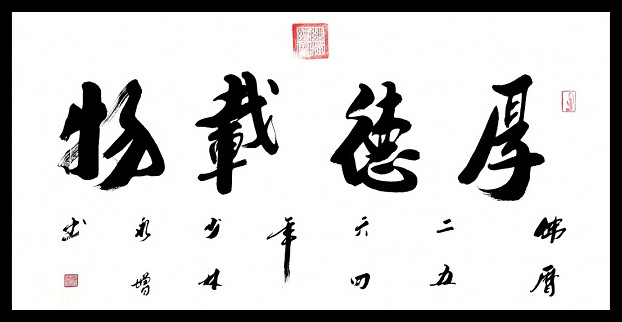 厚德載物
佛暦二五六四年少林永增书